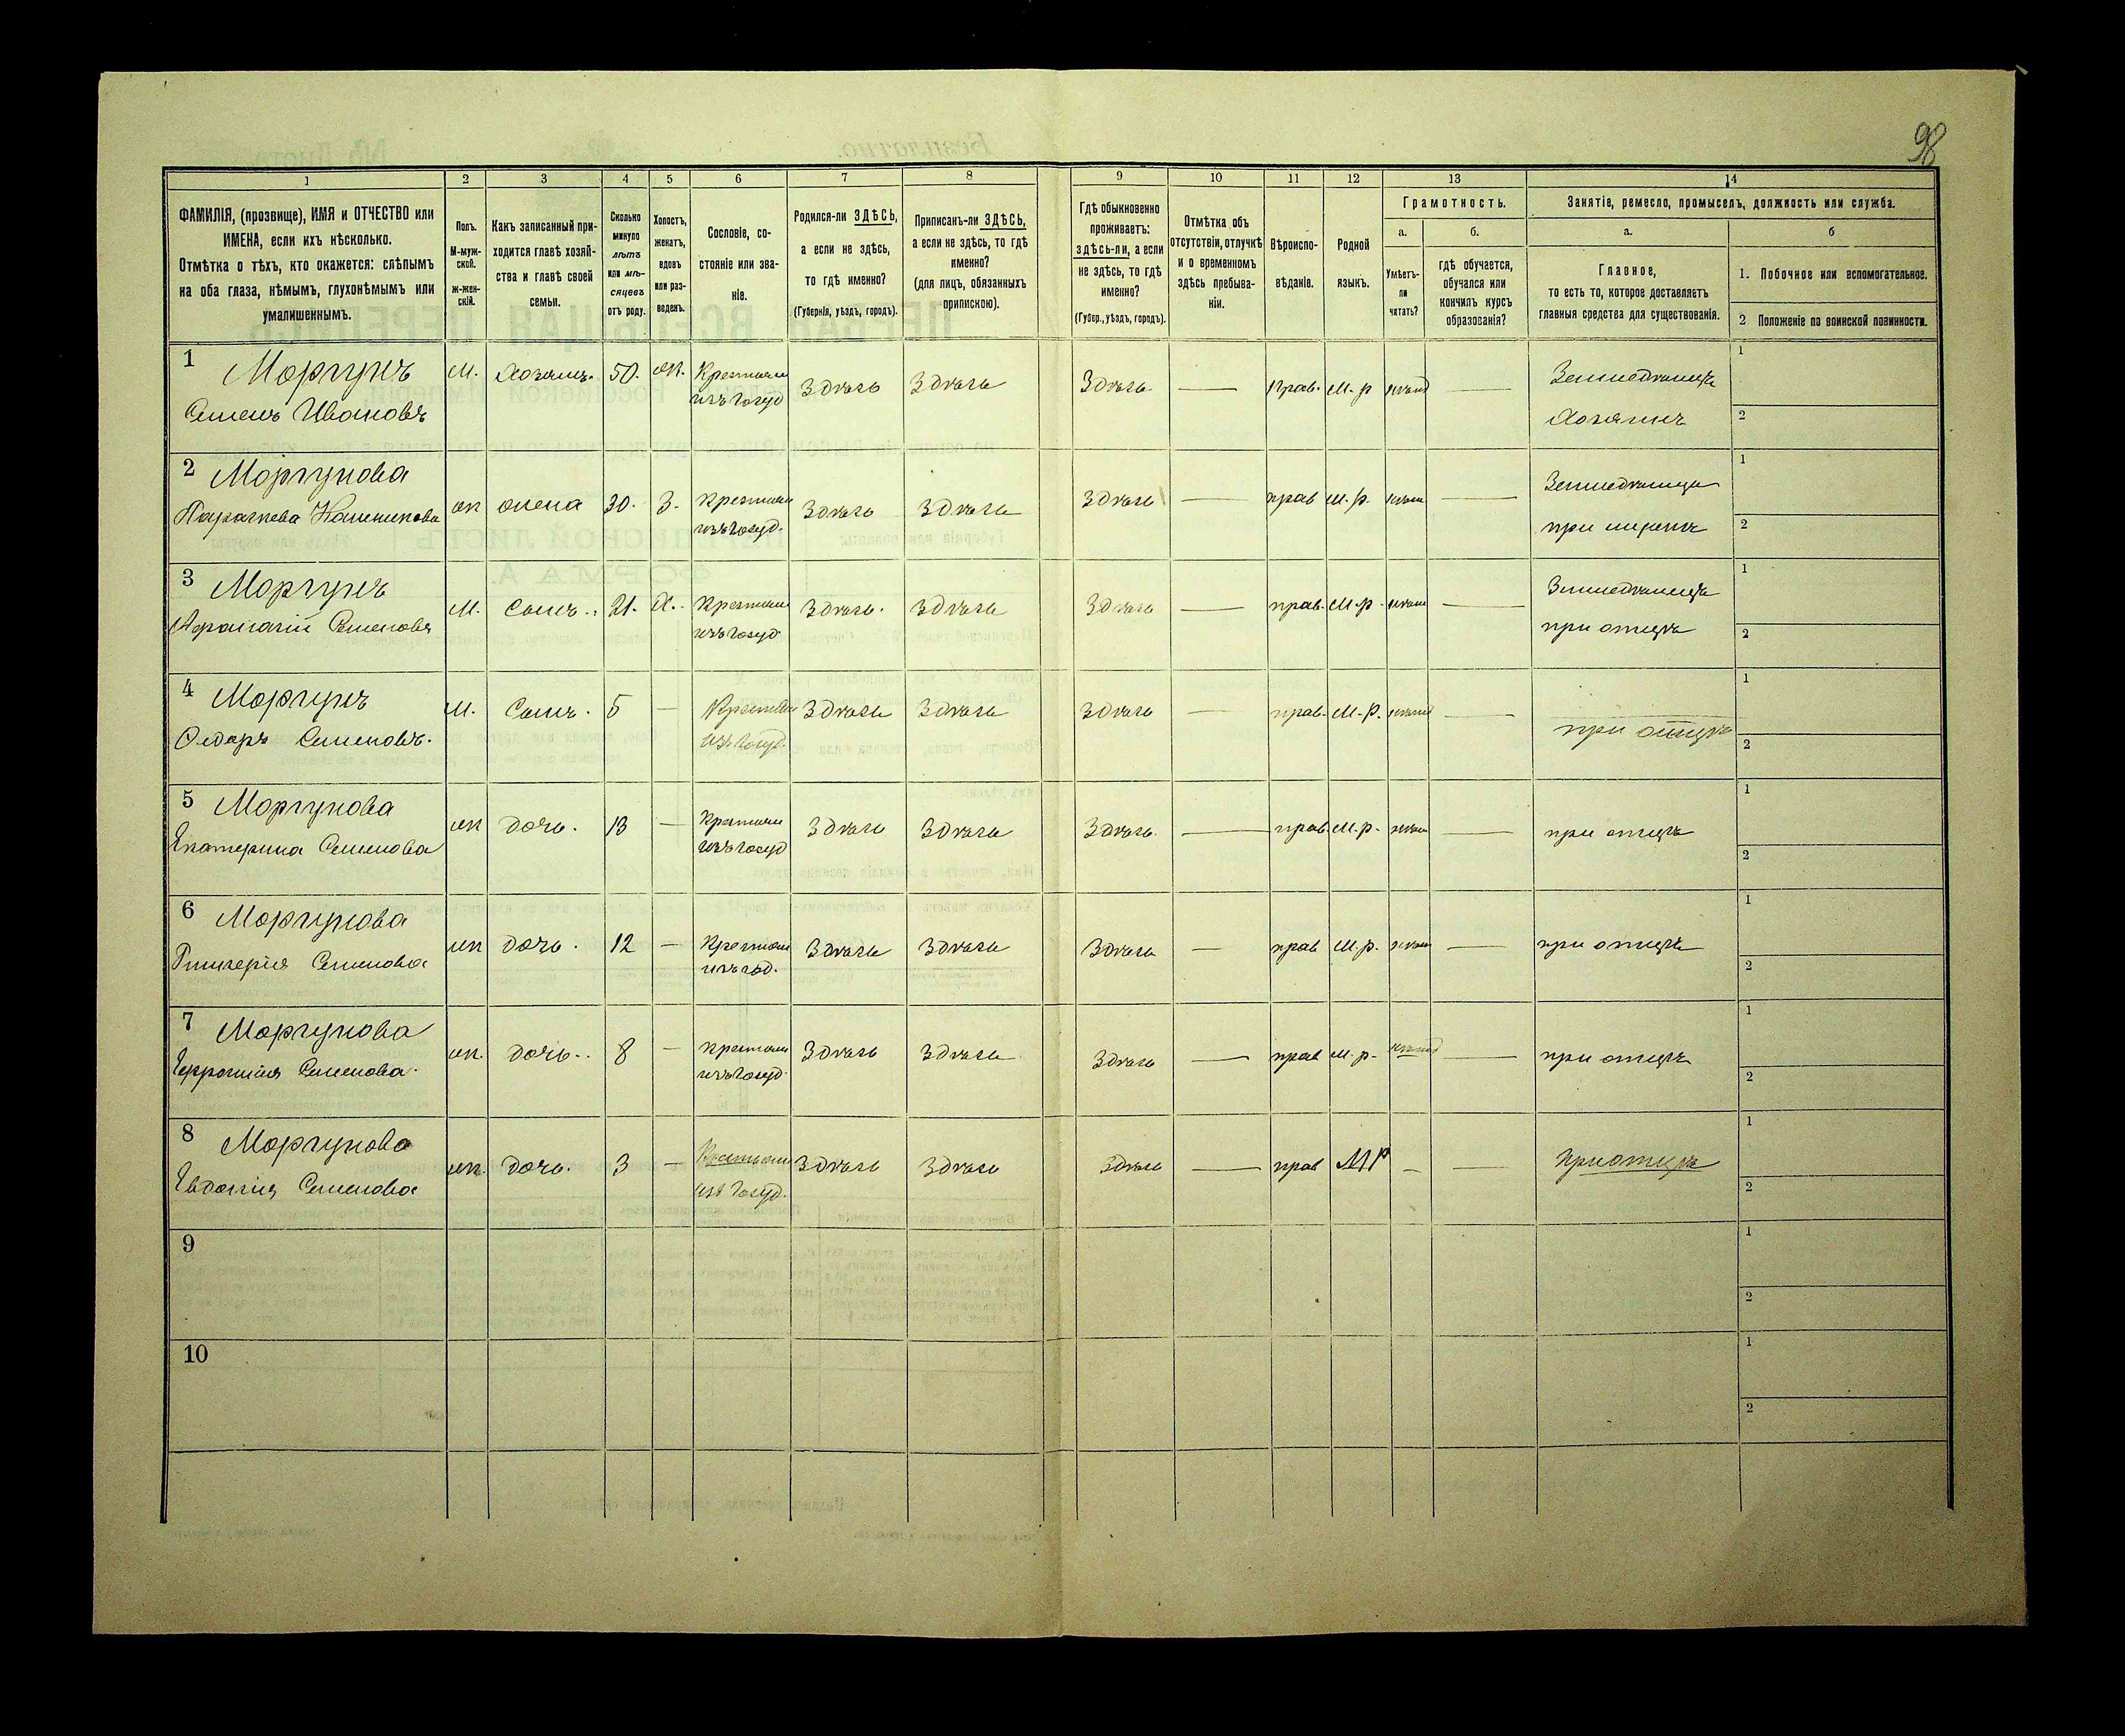 98
1 2 3 4 5 6 7 8 9 10 11 12 13 14
ФАМИЛІЯ, (прозвище), ИМЯ и ОТЧЕСТВО или
ИМЕНА, если ихъ нѣсколько.
Отмѣтка о тѣхъ, кто окажется: слѣпымъ
на оба глаза, нѣмымъ, глухонѣмымъ или
умалишеннымъ.
Полъ.
М-муж-
ской.
ж-жен-
скій.
Какъ записанный при-
ходится главѣ хозяй-
ства и главѣ своей
семьи.
Сколько
минуло
лѣтъ
или мѣ-
сяцевъ
отъ роду.
Холостъ,
женатъ,
вдовъ
или раз-
веденъ.
Сословіе, со-
стояніе или зва-
ніе.
Родился-ли ЗДѢСЬ,
а если не здѣсь,
то гдѣ именно?
(Губернія, уѣздъ, городъ).
Приписанъ-ли ЗДѢСЬ,
а если не здѣсь, то гдѣ
именно?
(для лицъ, обязанныхъ
припискою).
Гдѣ обыкновенно
проживаетъ:
здѣсь-ли, а если
не здѣсь, то гдѣ
именно?
(Губер., уѣздъ, городъ).
Отмѣтка объ
отсутствіи, отлучкѣ
и о временномъ
здѣсь пребыва-
ніи.
Вѣроиспо-
вѣданіе.
Родной
языкъ.
Грамотность.
а.
Умѣетъ-
ли
читать?
б.
гдѣ обучается,
обучался или
кончилъ курсъ
образованія?
Занятіе, ремесло, промыселъ, должность или служба.
а.
Главное,
то есть то, которое доставляетъ
главныя средства для существованія.
б
1. Побочное или вспомогательное.
2 Положеніе по воинской повинности.
1 Моргунъ
Семенъ Ивановъ
М. Хозяинъ. 50. Крестьян
изъ госуд
Здѣсь Здѣсь Здѣсь — Прав. М. р —
Земледѣлецъ
Хозяинъ
1
2
2 Моргунова
Параскева
ж жена 30. З. Крестьян
изъ госуд.
Здѣсь Здѣсь Здѣсь — прав М. р. —
при мужѣ
1
2
3 Моргунъ
Афанасій Семеновъ
М. Сынъ. 21. Х. Крестьян
изъ госуд
Здѣсь. Здѣсь Здѣсь — прав. М. р. —
Земледѣлецъ
при отцѣ
1
2
4 Моргунъ
Федоръ Семеновъ.
М. Сынъ. 5 — Крестьян
изъ госуд.
Здѣсь Здѣсь Здѣсь — прав. М. Р. —
при отцѣ
1
2
5 Моргунова
Екатерина Семенова
ж дочь. 13 — Крестьян
изъ госуд
Здѣсь Здѣсь Здѣсь. — прав. М. р. —
при отцѣ
1
2
6 Моргунова
Гликерія Семенова
ж дочь. 12 — Крестьян
Здѣсь Здѣсь Здѣсь — прав М. р. —
при отцѣ
1
2
7 Моргунова
Семенова.
ж. дочь. 8 — Крестьян
изъ госуд.
Здѣсь Здѣсь Здѣсь — прав М. р. —
при отцѣ
1
2
8 Моргунова
Евдокія Семенова
ж. дочь. 3 — Крестьян
изъ госуд.
Здѣсь Здѣсь Здѣсь — прав МР — —
при отцѣ
1
2
9
1
2
10
1
2